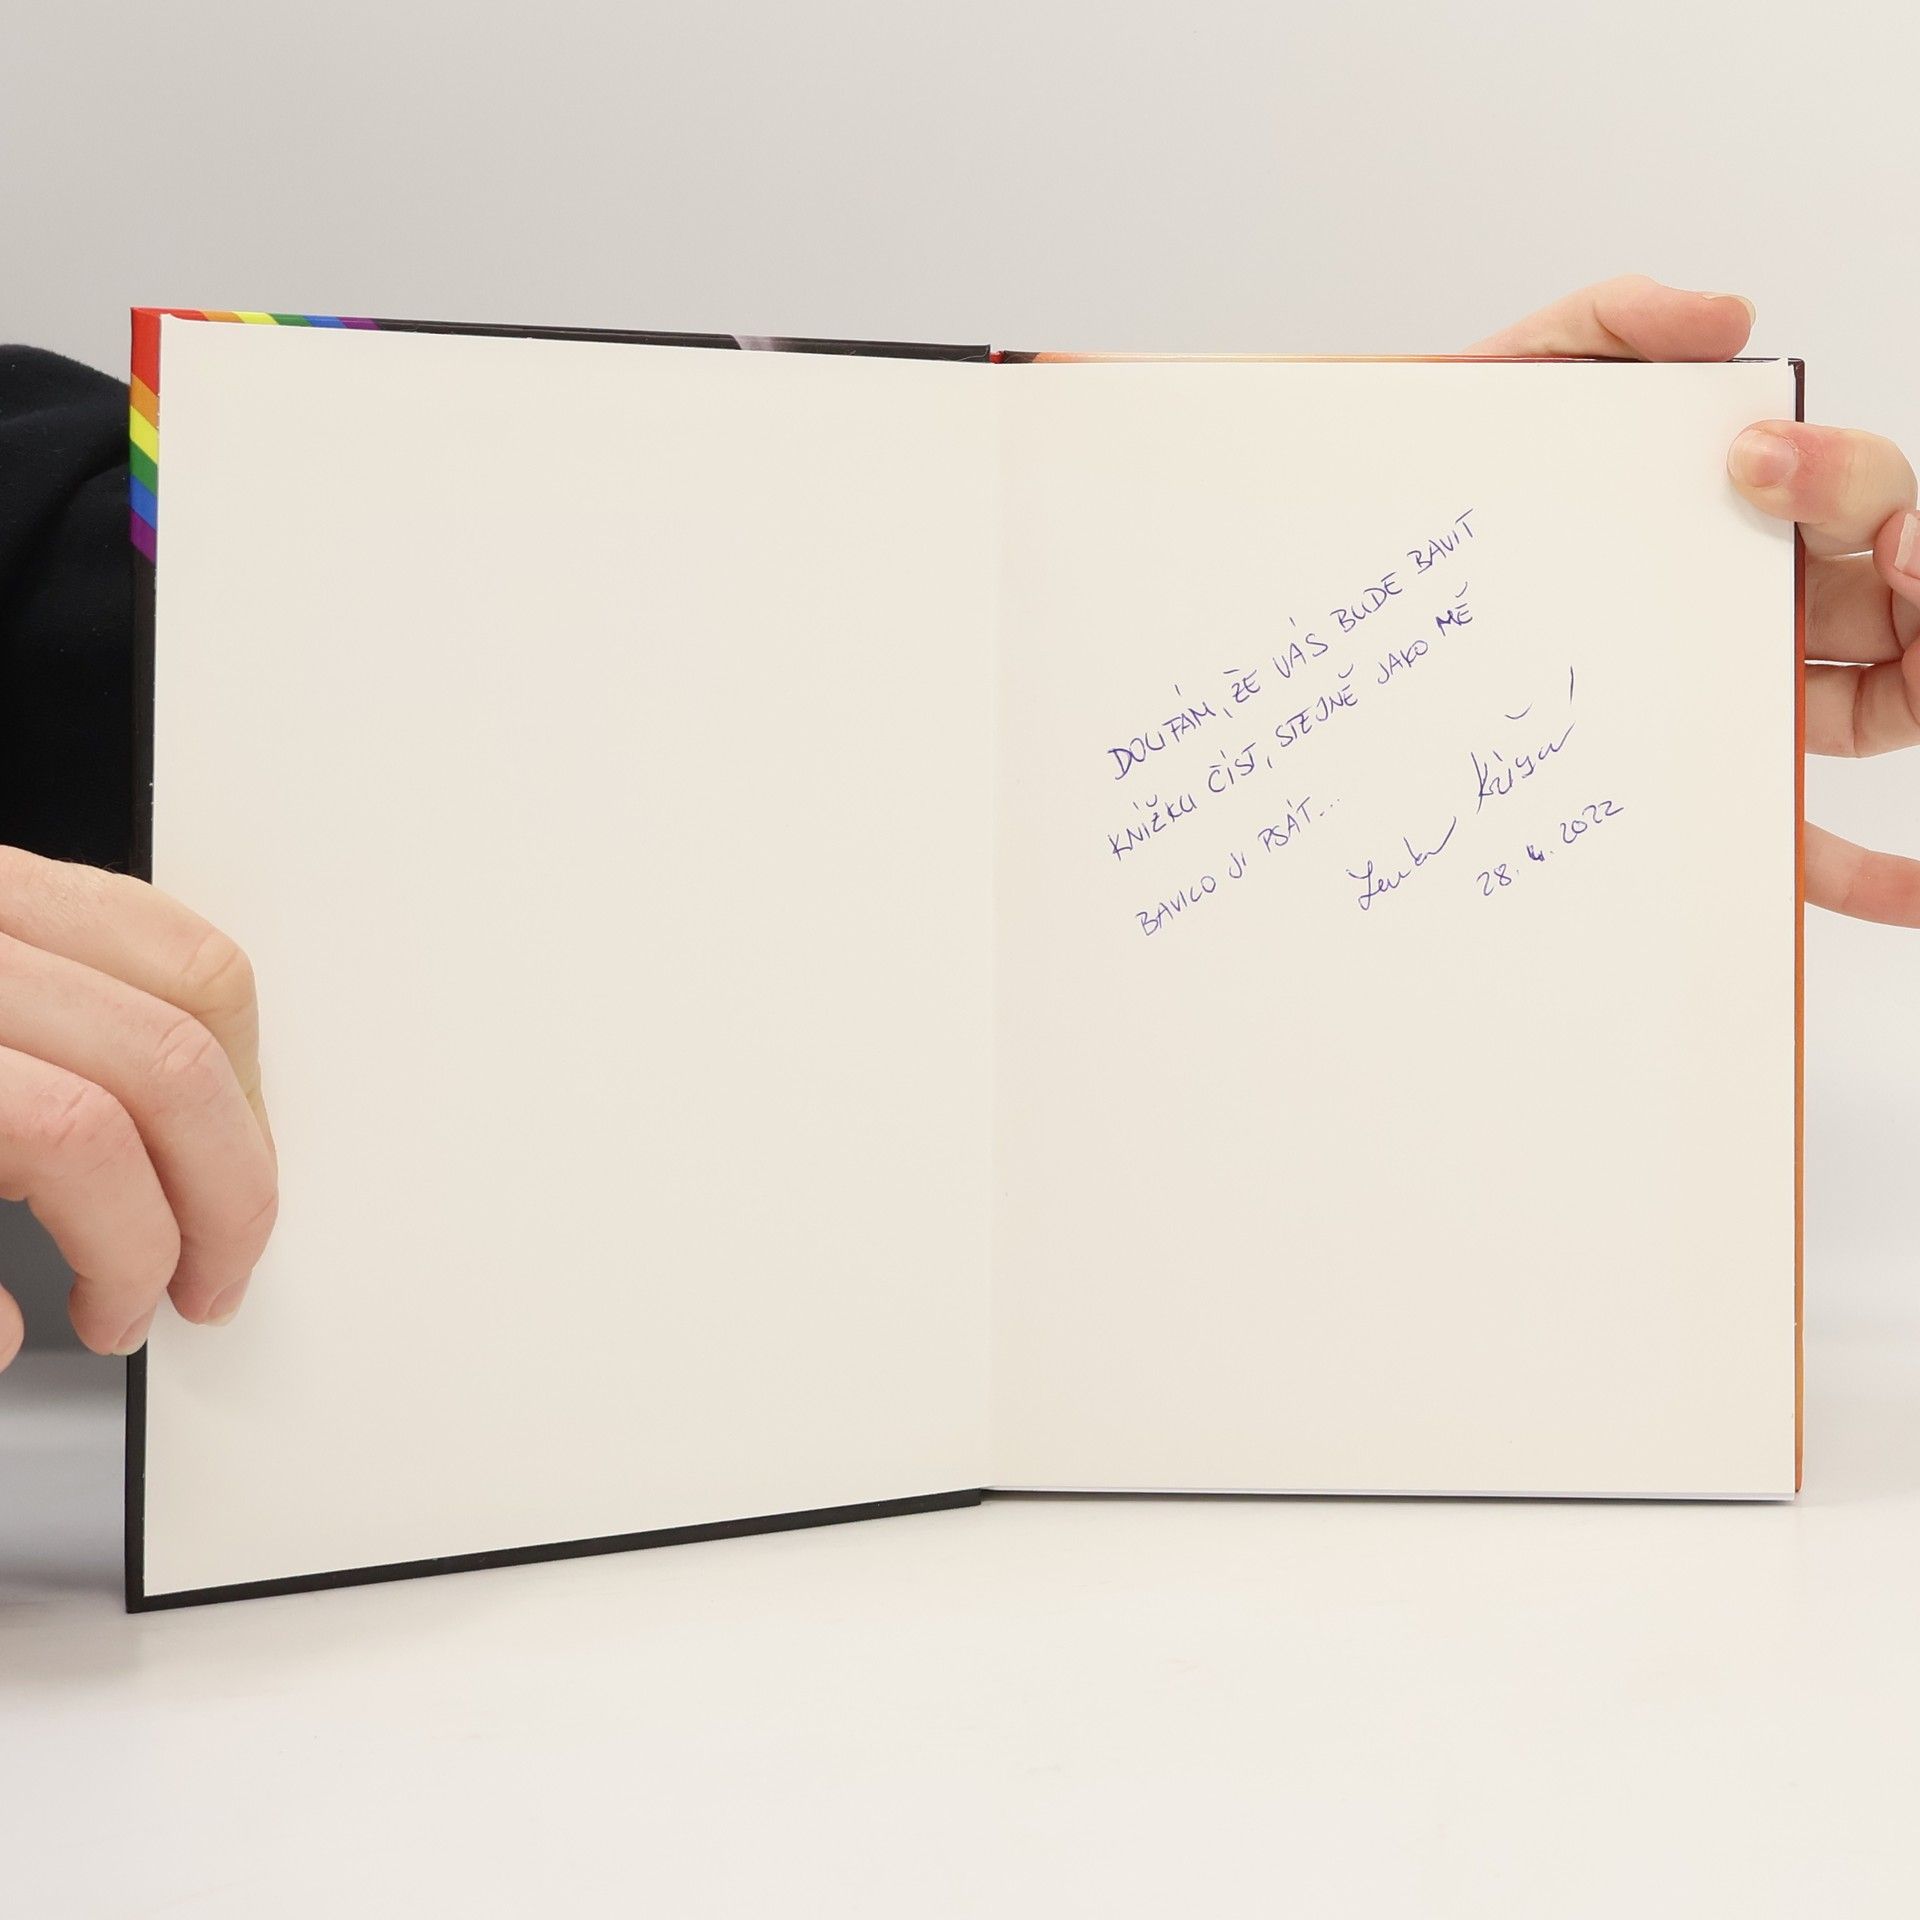 DOUFÁM, ŽE VÁS BUDE BAVIT
KNÍŽKU ČÍST, STEJNĚ JAKO MĚ
BAVILO JI PSÁT...
Lenka
28. 4. 2022